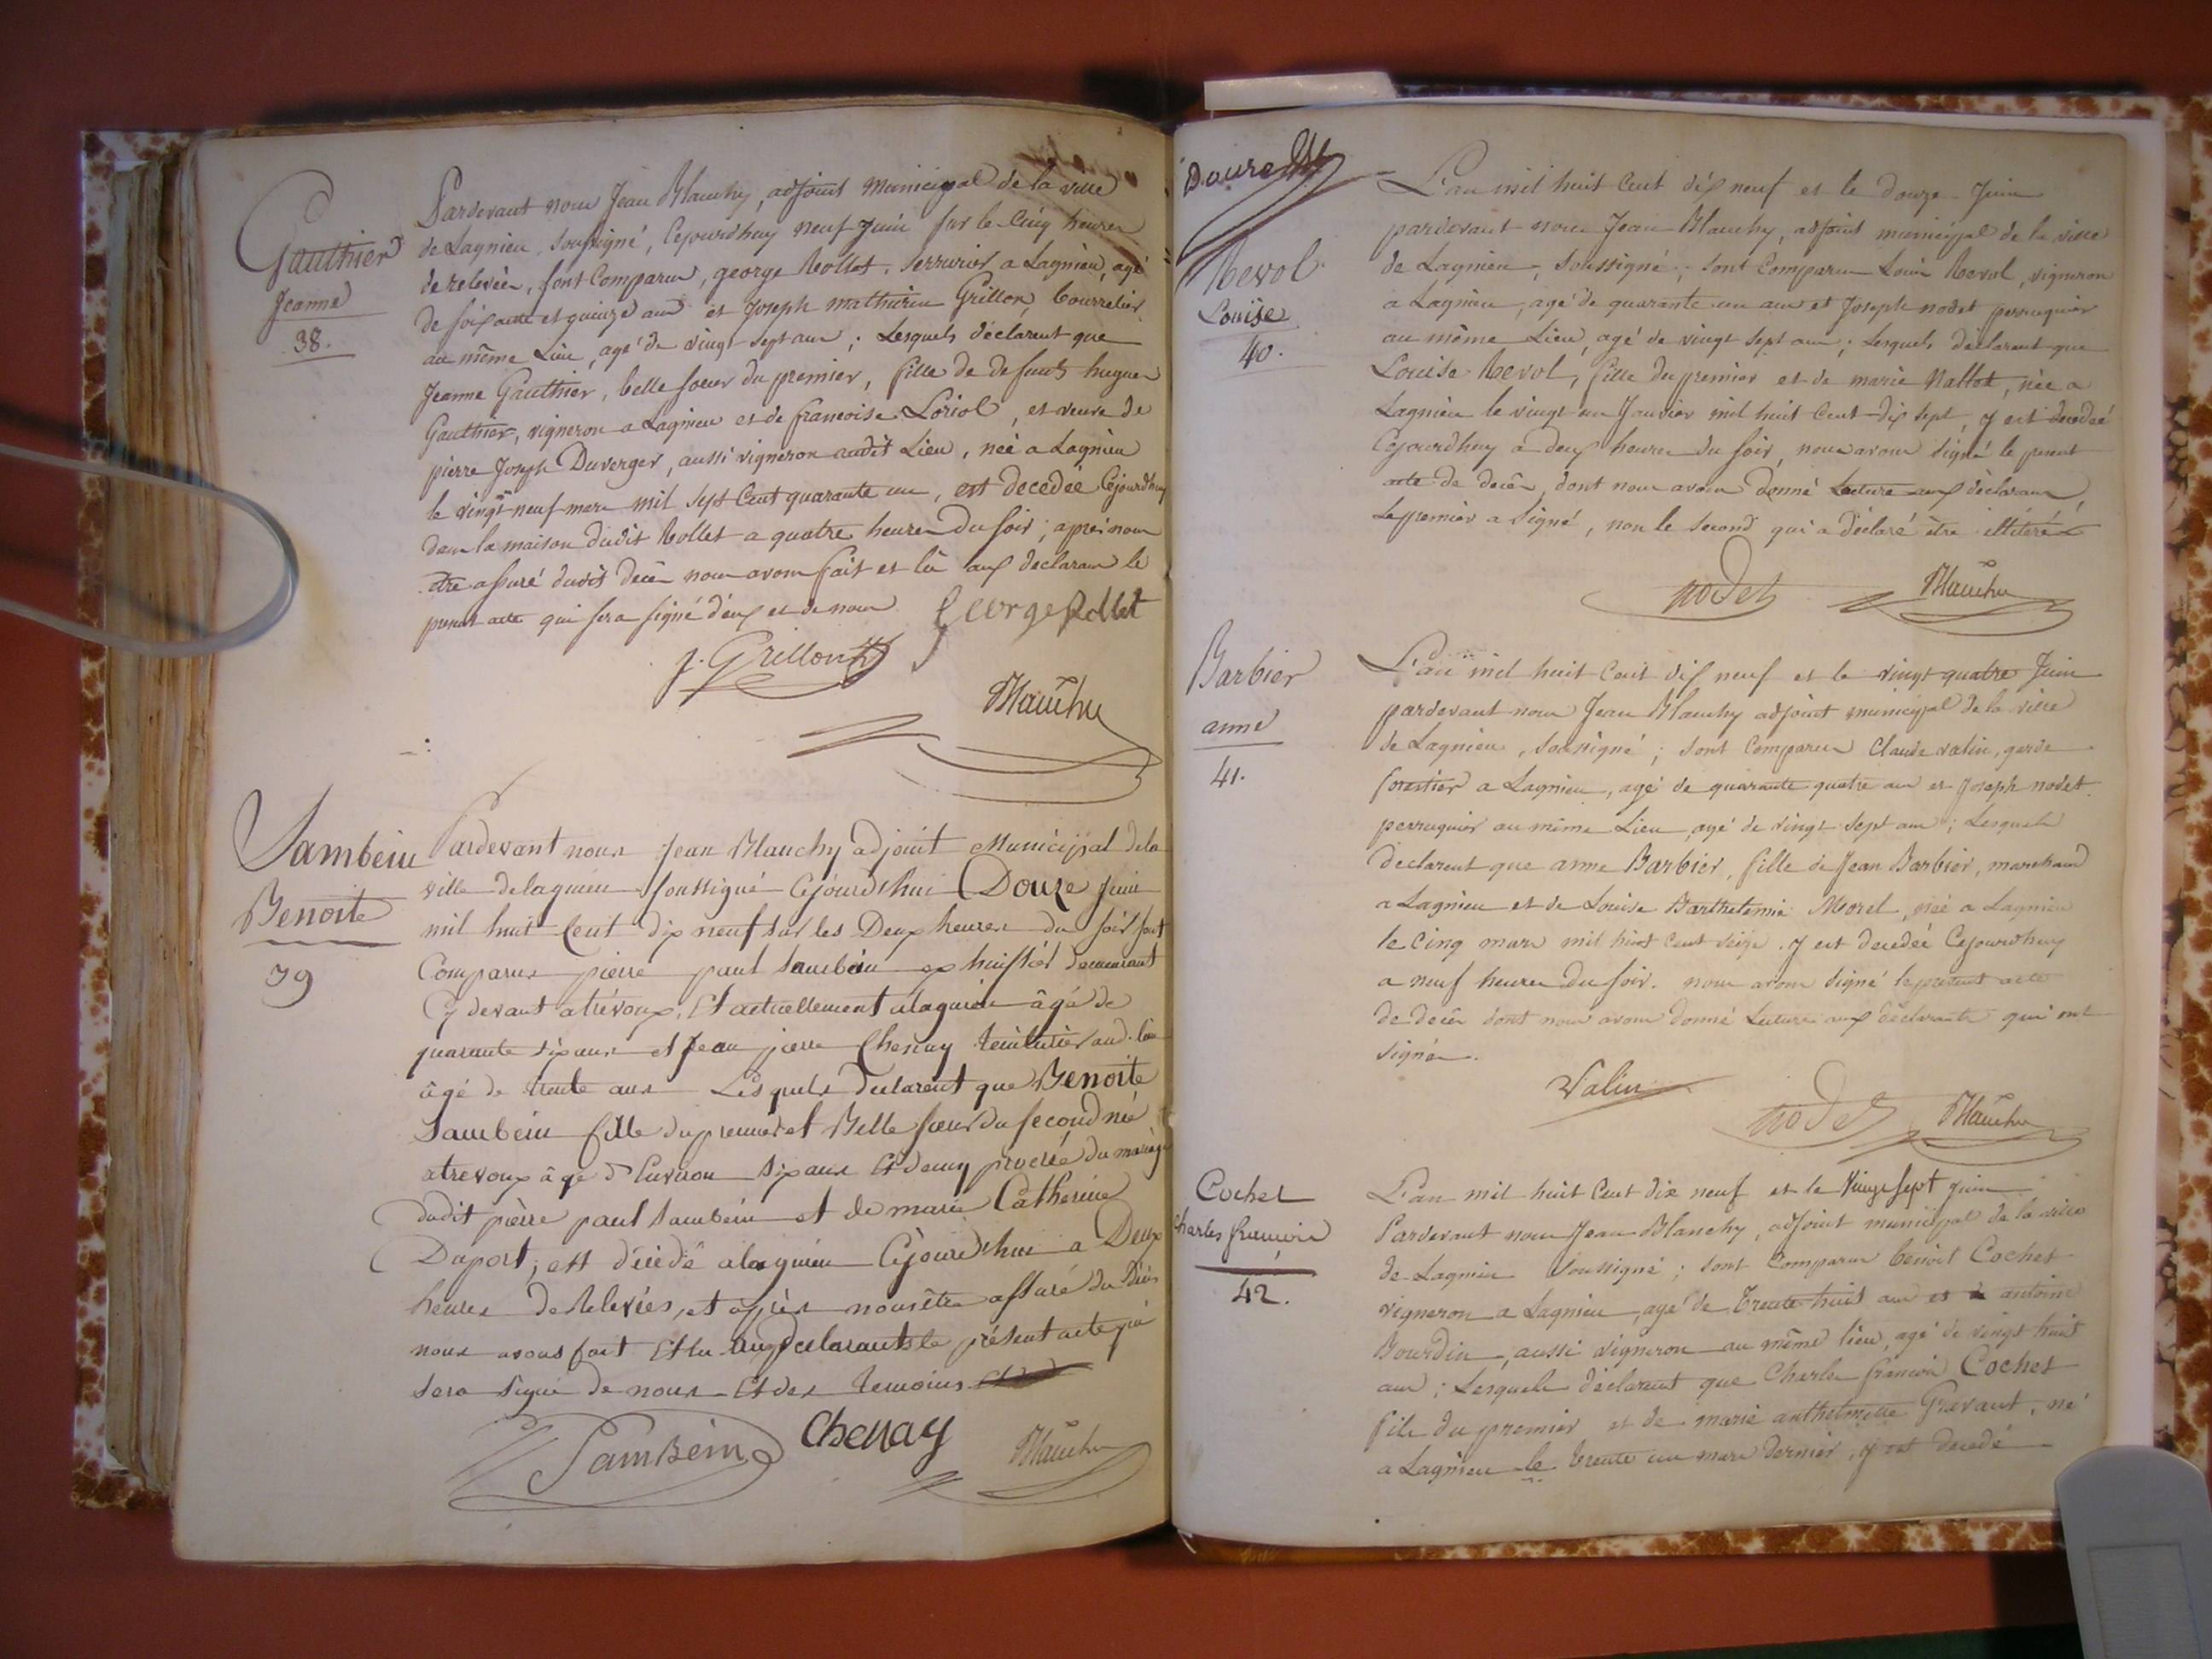 Gauthier
Jeanne
38.
Pardevant nous Jean Blanchy, adjoint municipal de la ville
de Lagnieu, soussigné, Cejourdhuy neuf Juin sur le Cinq heures
de relevée, sont Comparus, george Rollet, serrurier a Lagnieu, agé
de soixante et quinze ans et Joseph mathurin Grillon, bourrelier
au même Lieu, agé de vingt sept ans; Lesquels déclarent que
Jeanne Gauthier, belle soeur du premier, fille de defunts hugues
Gauthier, vigneron a Lagnieu et de francoise Loriol, et veuve de
pierre Joseph Duverger, aussi vigneron audit Lieu, née a Lagnieu
le vingt neuf mars mil sept Cent quarante un, est decedée Cejourdhuy
dans la maison dudit Rollet a quatre heures du soir; aprés nous
etre assuré dudit decès nous avons fait et lû aux declarans le
present acte qui sera signé d'eux et de nous
George Rollet
J. Grillon
Blanchy
Sambein
Benoite
39
Pardevant nous Jean Blanchy adjoint Municipal de la
ville de lagnieu soussigné Cejourdhui Douze Juin
mil huit Cent dix neuf sur les Deux heures du soir sont
Comparus pierre paul Sambein ex huissier demeurant
Cy devant a trévoux, Et actuellement a lagnieu âgé de
quarante six ans et Jean pierre Chenay teinturier aud. lieu
âgé de trente ans Lesquels declarent que Benoite
Sambein fille du premier et Belle soeur du second né
a trevoux âgé d'Environ six ans Et demy procréé du mariage
dudit pierre paul Sambein et de marie Catherine
Duport, est décédé a lagnieu Cejourdhui a Deux
heures de Relevées, et après nous être assuré du décès
nous avons fait Et lu aux declarants le présent acte qui
sera signé de nous Et des temoins
Sambein Chenay Blanchy
Revol
Louise
40.
L'an mil huit Cent dix neuf et le douze Juin
pardevant nous Jean Blanchy, adjoint municipal de la ville
de Lagnieu, soussigné; sont Comparus Louis Revol, vigneron
a Lagnieu, agé de quarante un ans et Joseph nodet perruquier
au même Lieu, agé de vingt sept ans; Lesquels declarent que
Louise Revol, fille du premier et de marie Nallet, née a
Lagnieu le vingt un Janvier mil huit Cent dix sept, y est decedée
Cejourdhuy a deux heures du soir, nous avons signé le present
acte de decès, dont nous avons donné Lecture aux déclarans,
Le premier a signé, non le second qui a déclaré être illitéré
nodet Blanchy
Barbier
anne
41.
L'an mil huit Cent dix neuf et le vingt quatre Juin
pardevant nous Jean Blanchy adjoint municipal de la ville
de Lagnieu, soussigné; sont Comparus Claude valin, garde
forestier a Lagnieu, agé de quarante quatre ans et Joseph nodet
perruquier au même Lieu, agé de vingt sept ans; Lesquels
declarent que anne Barbier, fille de Jean Barbier, marchand
a Lagnieu et de Louise Barthelemie Morel, née a Lagnieu
le Cinq mars mil huit Cent seize. y est decedée Cejourdhuy
a neuf heures du soir. nous avons signé le present acte
de decès dont nous avons donné Lecture aux déclarants qui ont
signés.
Valin
nodet Blanchy
Cochet
Charles francois
42.
L'an mil huit Cent dix neuf et le Vingt sept juin
Pardevant nous Jean Blanchy, adjoint municipal de la ville
de Lagnieu soussigné; sont Comparus benoit Cochet
vigneron a Lagnieu, agé de trente huit ans et antoine
Bourdin, aussi vigneron au même lieu, agé de vingt huit
ans; Lesquels déclarent que Charles francois Cochet
fils du premier et de marie anthelmette Gravant, né
a Lagnieu le trente un mars dernier, y est decedé